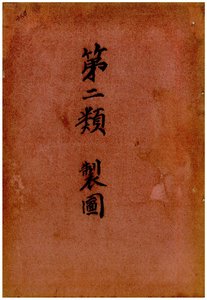 第二類 製圖